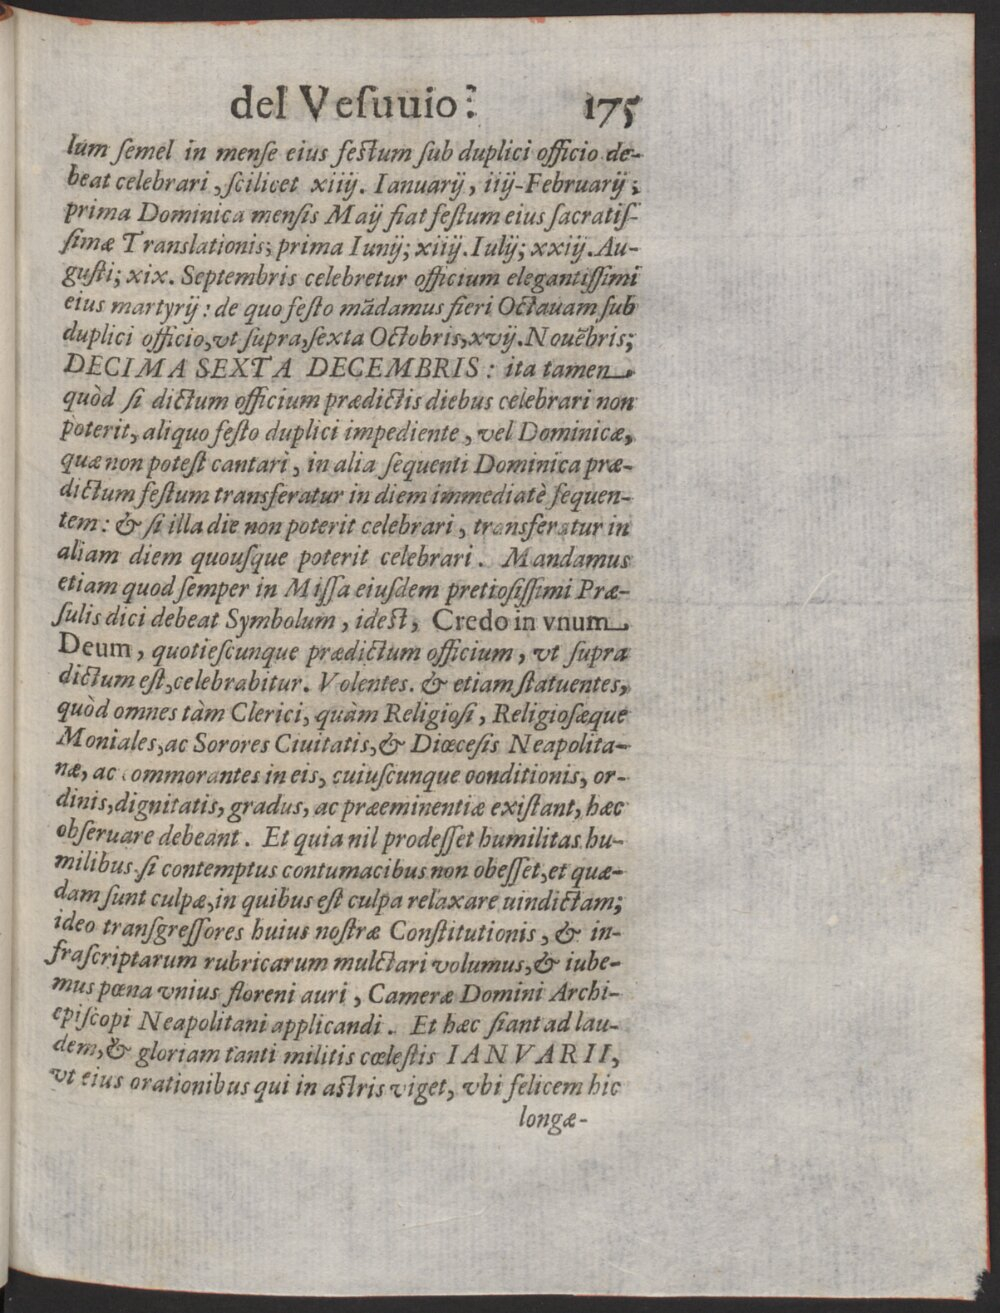 del Veſuuio? 175
lum ſemel in menſe eius feſtum ſub duplici officio de-
beat celebrari, ſcilicet xiiij. Ianuarij, iiij-Februarij;
prima Dominica menſis Maij fiat feſtum eius ſacratiſ-
ſimæ Translationis; prima Iunij; xiiij. Iulij; xxiij. Au-
guſti; xix. Septembris celebretur officium elegantiſſimi
eius martyrij: de quo feſto mãdamus fieri Octauam ſub
duplici officio, vt ſupra, ſexta Octobris, xvij. Nouẽbris;
DECIMA SEXTA DECEMBRIS: ita tamen
quòd ſi dictum officium prædictis diebus celebrari non
poterit, aliquo feſto duplici impediente, vel Dominicæ,
quæ non poteſt cantari, in alia ſequenti Dominica præ-
dictum feſtum transferatur in diem immediatè ſequen-
tem: & ſi illa die non poterit celebrari, transferatur in
aliam diem quouſque poterit celebrari. Mandamus
etiam quod ſemper in Miſſa eiuſdem pretioſiſſimi Præ-
ſulis dici debeat Symbolum, ideſt, Credo in vnum
Deum, quotieſcunque prædictum officium, vt ſupra
dictum eſt, celebrabitur. Volentes. & etiam ſtatuentes,
quòd omnes tàm Clerici, quàm Religioſi, Religioſæque
Moniales, ac Sorores Ciuitatis, & Diœceſis Neapolita-
næ, ac commorantes in eis, cuiuſcunque oonditionis, or-
dinis, dignitatis, gradus, ac præeminentiæ exiſtant, hæc
obſeruare debeant. Et quia nil prodeſſet humilitas hu-
milibus ſi contemptus contumacibus non obeſſet, et quæ-
dam ſunt culpæ, in quibus eſt culpa relaxare uindictam;
ideo tranſgreſſores huius noſtræ Conſtitutionis, & in-
fraſcriptarum rubricarum mulctari volumus, & iube-
mus pœna vnius floreni auri, Cameræ Domini Archi-
epiſcopi Neapolitani applicandi. Et hæc fiant ad lau-
dem, & gloriam tanti militis cœleſtis IANVARII,
vt eius orationibus qui in aſtris viget, vbi felicem hic
longæ-